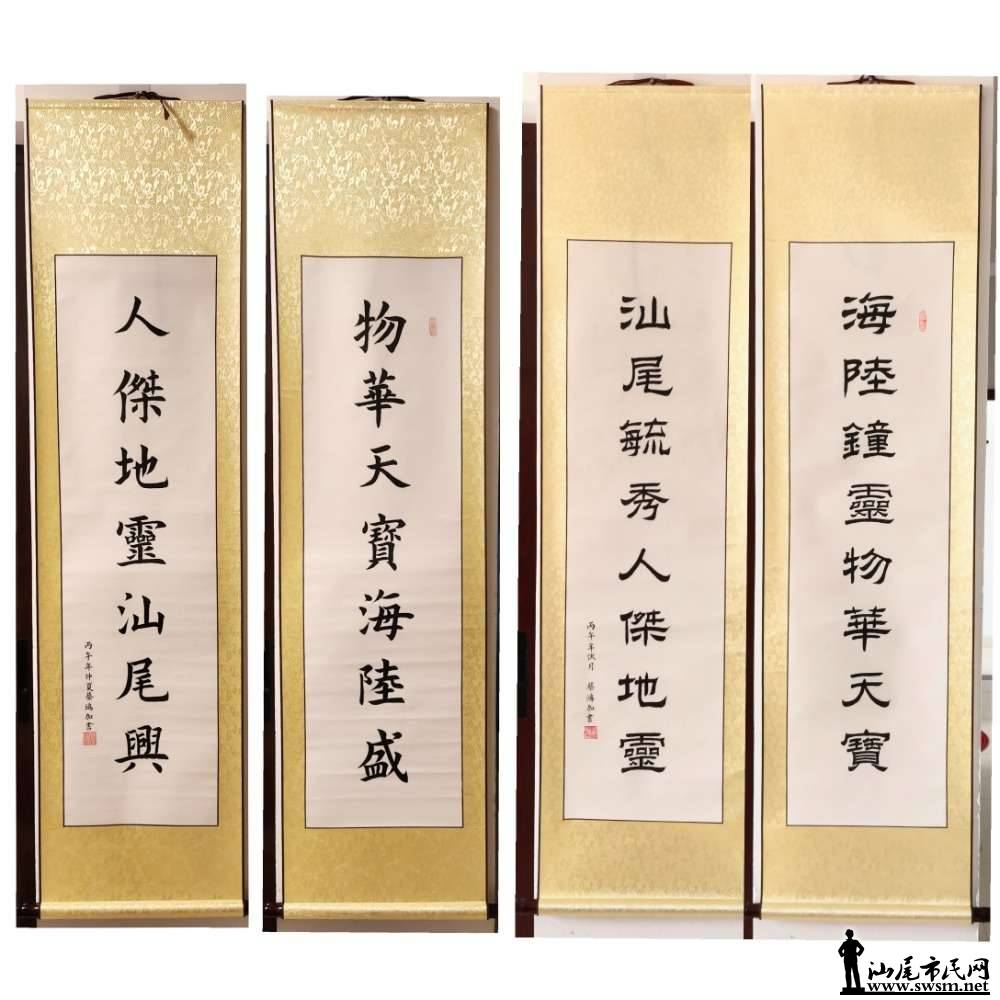 海陸鐘靈物華天寶
汕尾毓秀人傑地靈
丙午年伏月 蔡鴻加書
物華天寶海陸盛
人傑地靈汕尾興
丙午年仲夏蔡鴻加書
汕尾市民网
www.swsm.net